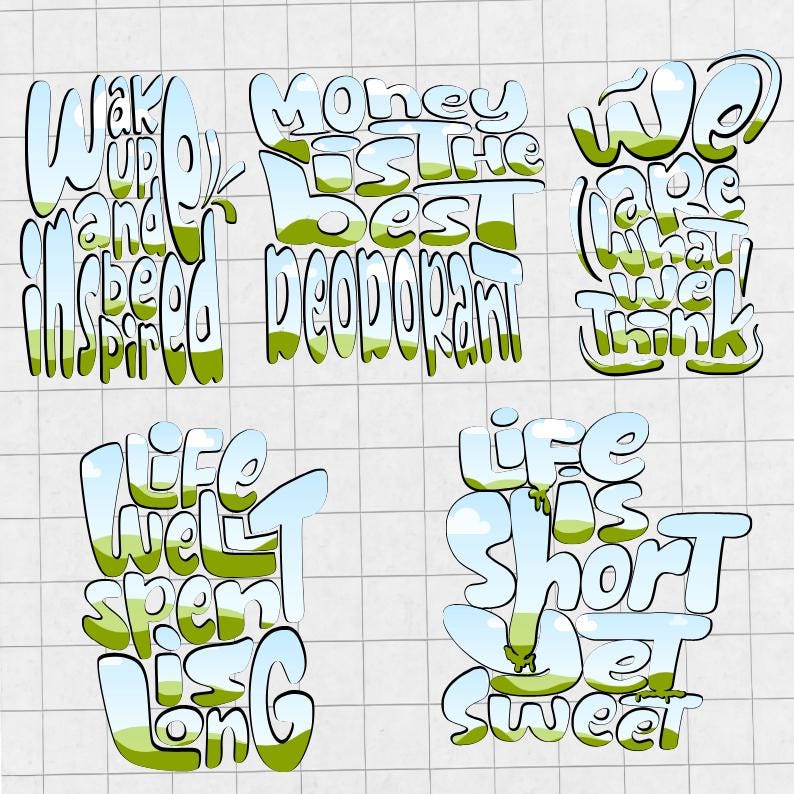 Wake
up
and
be
inspired
Money
is THe
besT
DeoDoranT
We
aRe
whaT
we
Think
LiFe
weLL
spenT
is
LonG
LiFe
is
ShorT
yeT
sweeT